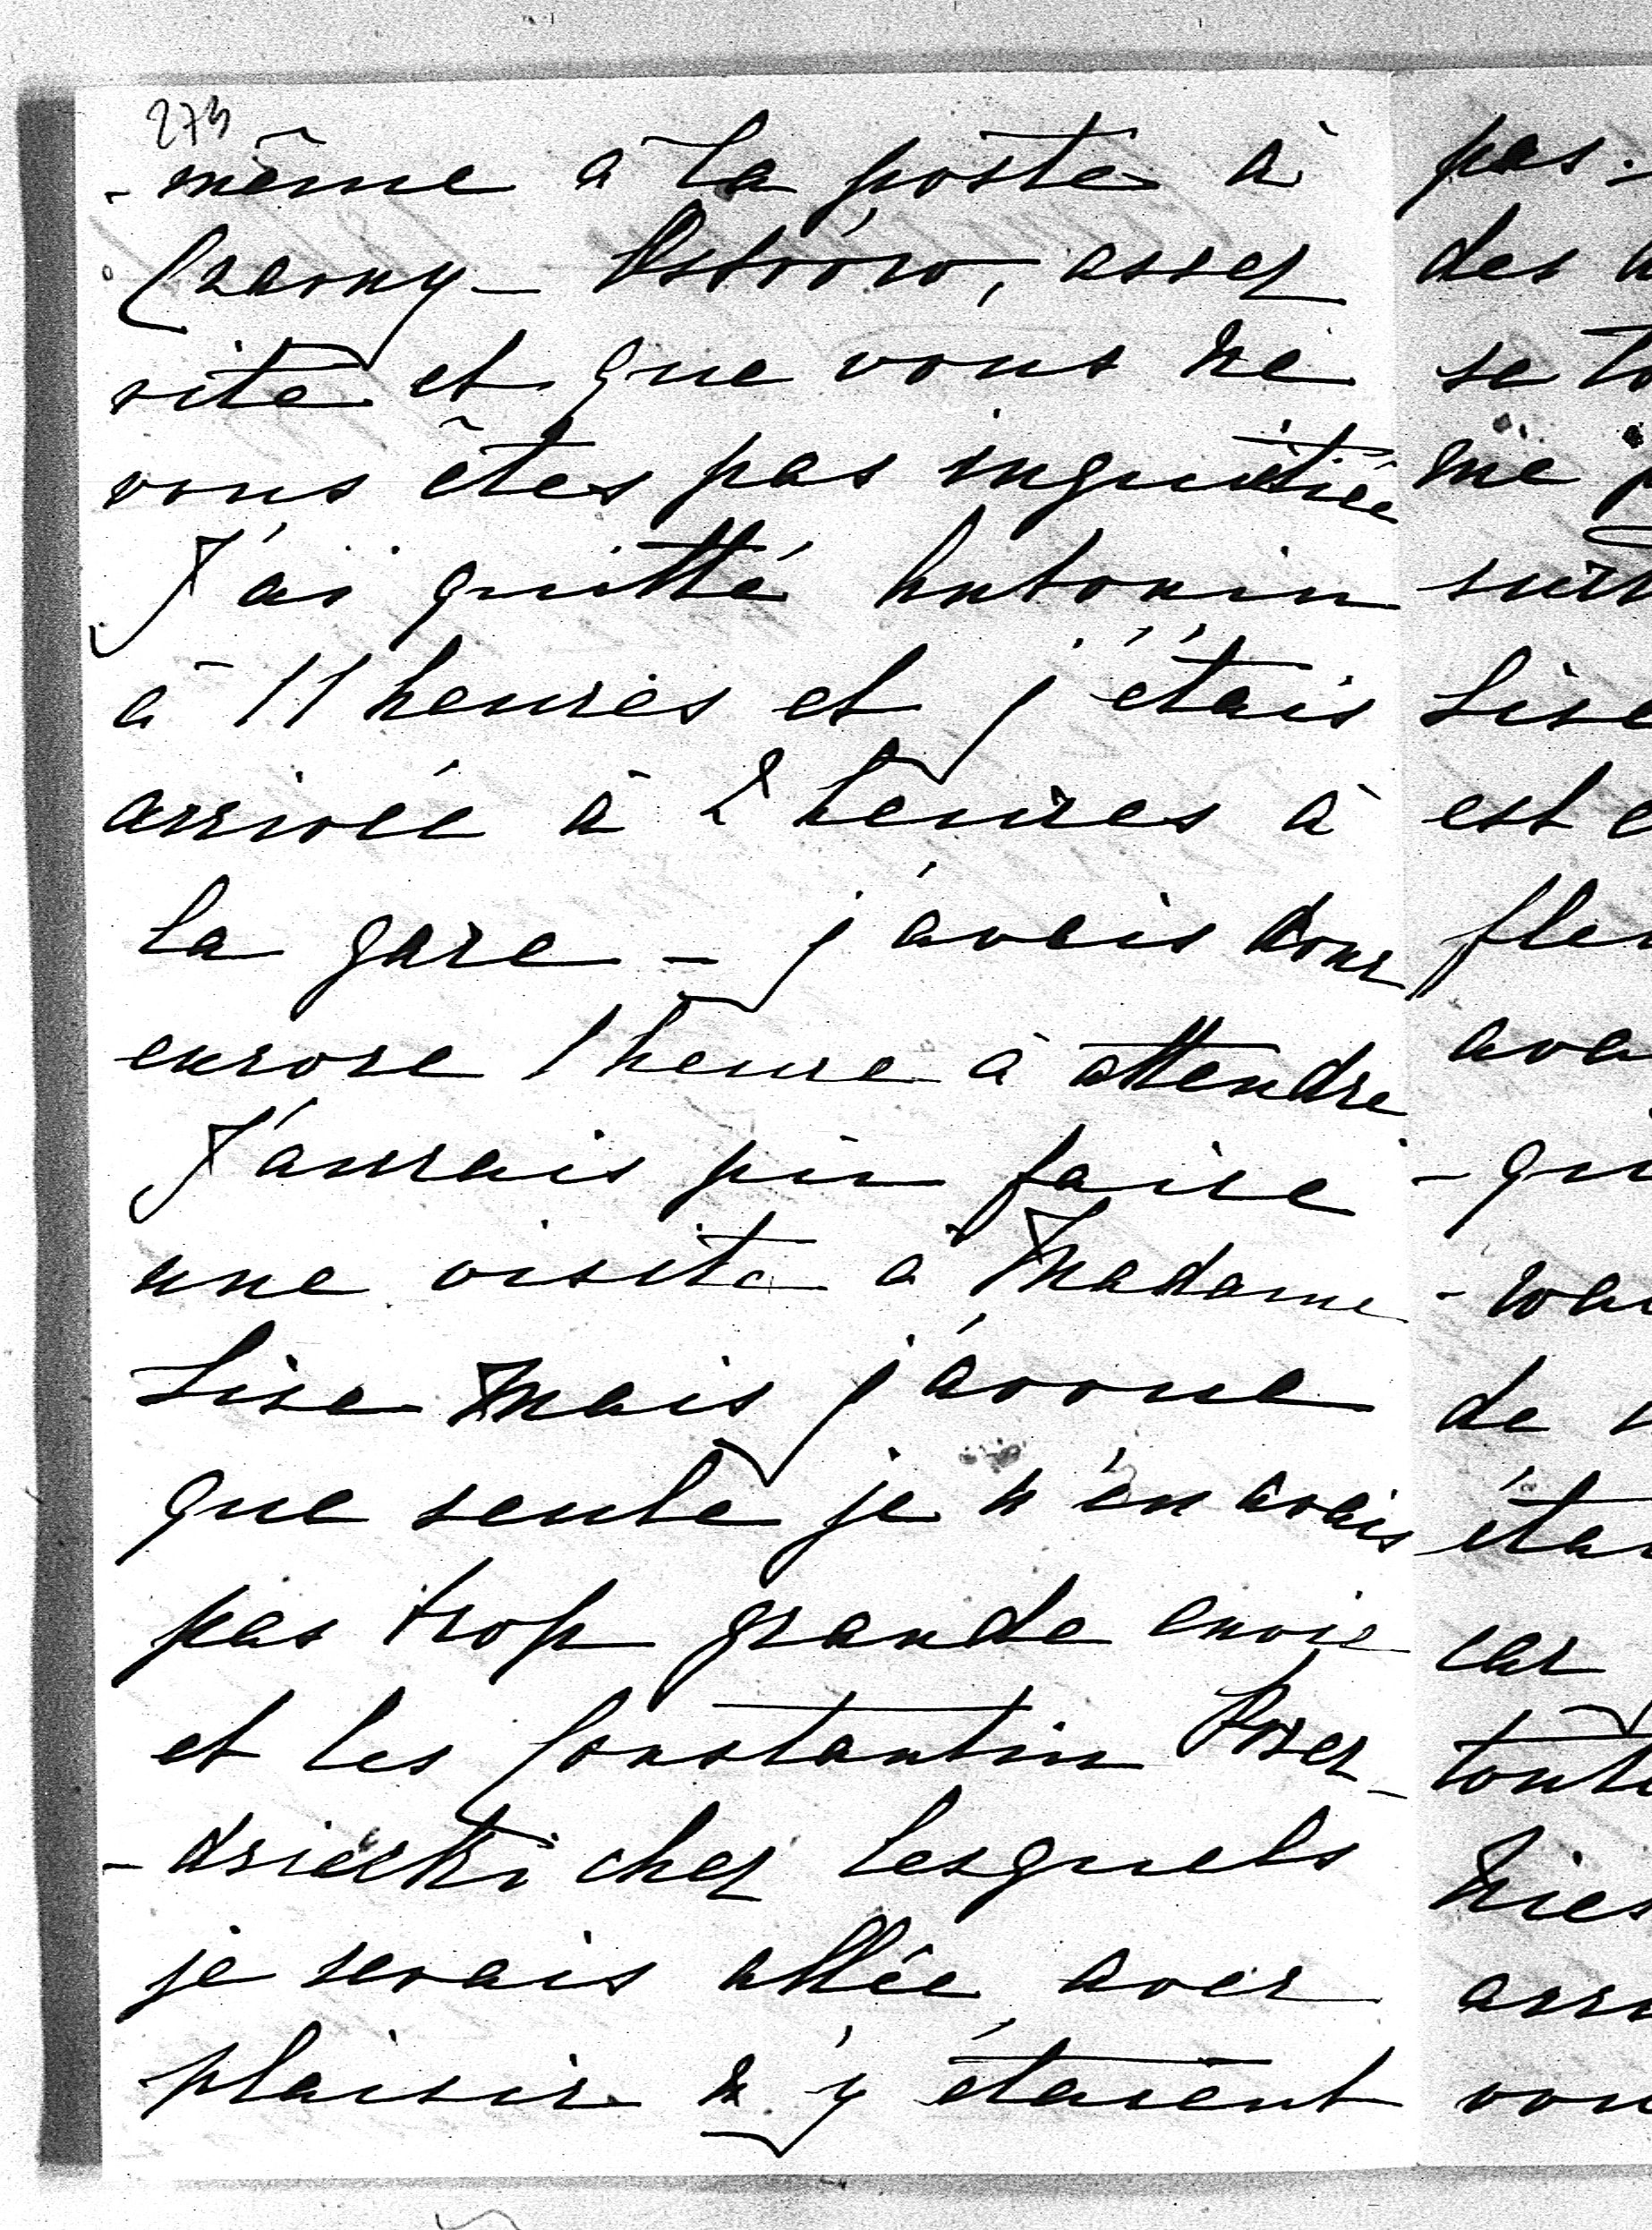 273
-même à la poste à
Czarny-Ostrów, assez
vite et que vous ne
vous êtes pas inquiétée
J'ai quitté Antonin
à 11 heures et j'étais
arrivée à 2 heures à
la gare - j'avais donc
encore 1 heure à attendre
J'aurais pu faire
une visite à Madame
Lise mais j'avoue
que seule je n'en avais
pas trop grande envie
et les Constantin
chez lesquels
je serais allée avec
plaisir n'y étaient
pas.
des
se
me
Lise
est
de
car